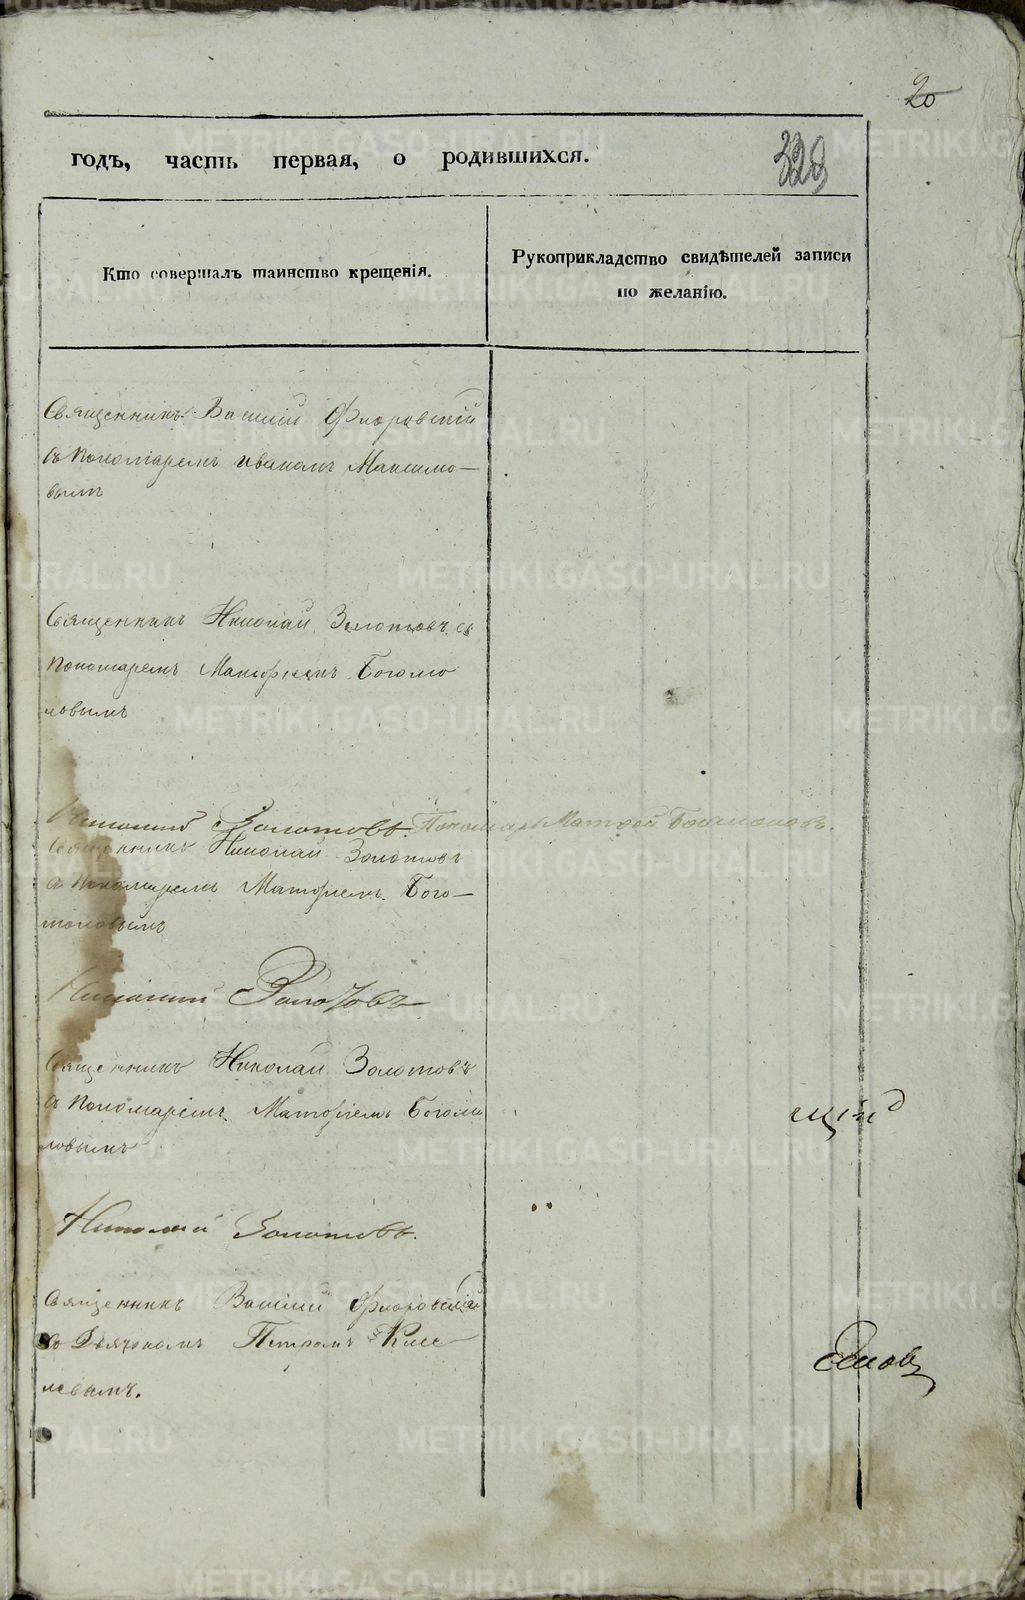 20
329
годъ, часть первая, о родившихся.
Кто совершалъ таинство крещенія.
Рукоприкладство свидѣтелей записи
по желанію.
Священникъ Василій Флоровскій
съ Пономаремъ Иваномъ Максимо-
вымъ
Священникъ Николай Золотовъ съ
Пономаремъ Матфіемъ Боголю
ловымъ
Николай Золотовъ. Пономарь Матфей
Священникъ Николай Золотовъ
съ Пономаремъ Матфіемъ Бого-
моловымъ
Николай Золотовъ
Священникъ Николай Золотовъ
съ Пономаремъ Матфіемъ Богомо
ловымъ
щій
Николай Золотовъ.
Священникъ Василій Флоровскій
съ Дьячкомъ Петромъ Кисе-
левымъ.
METRIKI.GASO-URAL.RU